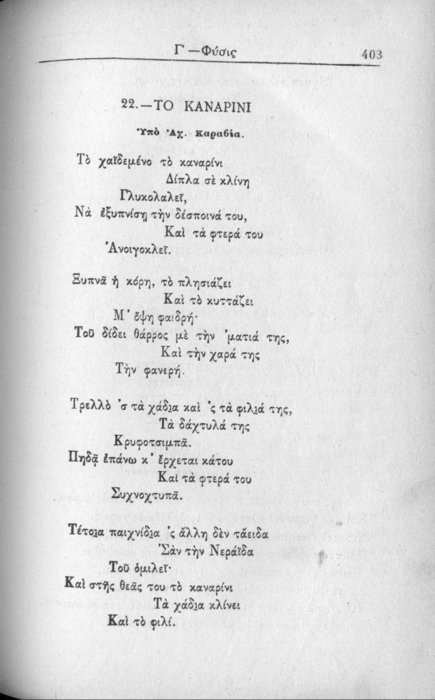 Γ' — Φύσις
403
22.—ΤΟ ΚΑΝΑΡΙΝΙ
Ὑπὸ Ἀχ. Καραβία.
Τὸ χαϊδεμένο τὸ καναρίνι
Δίπλα σὲ κλίνη
Γλυκολαλεῖ,
Νὰ ἐξυπνίσῃ τὴν δέσποινά του,
Καὶ τὰ φτερά του
Ἀνοιγοκλεῖ.
Ξυπνᾶ ἡ κόρη, τὸ πλησιάζει
Καὶ τὸ κυττάζει
Μ' ὄψη φαιδρή·
Τοῦ δίδει θάρρος μὲ τὴν 'ματιά της,
Καὶ τὴν χαρά της
Τὴν φανερή.
Τρελλὸ 'ς τὰ χάδια καὶ 'ς τὰ φιλιά της,
Τὰ δάχτυλά της
Κρυφοτσιμπᾶ.
Πηδᾷ ἐπάνω κ' ἔρχεται κάτου
Καὶ τὰ φτερά του
Συχνοχτυπᾶ.
Τέτοια παιχνίδια 'ς ἄλλη δὲν τἄειδα
Σὰν τὴν Νεράϊδα
Τοῦ ὁμιλεῖ·
Καὶ στῆς θεᾶς του τὸ καναρίνι
Τὰ χάδια κλίνει
Καὶ τὸ φιλί.